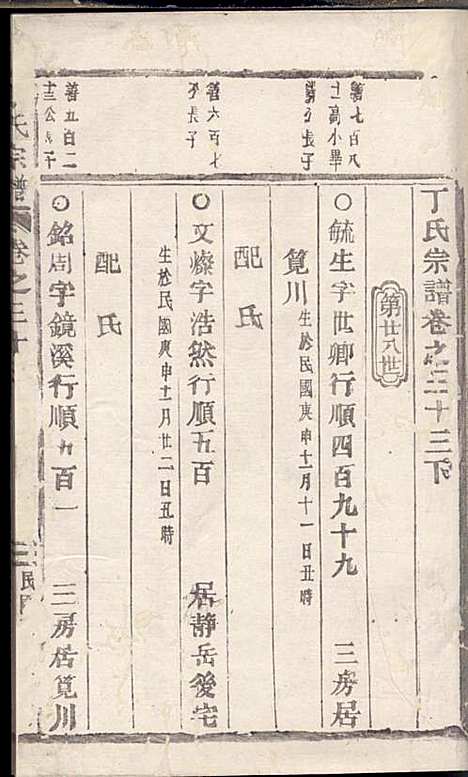 丁氏宗譜卷之二十三下
第廿八世
善七百八
十二高小畢
善久長子
○毓生字世卿行順四百九十九　三房居
筧川　生於民國庚申十一月十一日丑時
配氏
善六百七
長子
○文燦字浩然行順五百　居靜岳後宅
生於民國庚申十一月廿二日丑時
配氏
善五百二
十三公
○銘周字鏡溪行順五百一　三房居筧川
氏宗譜
卷之二十
民下